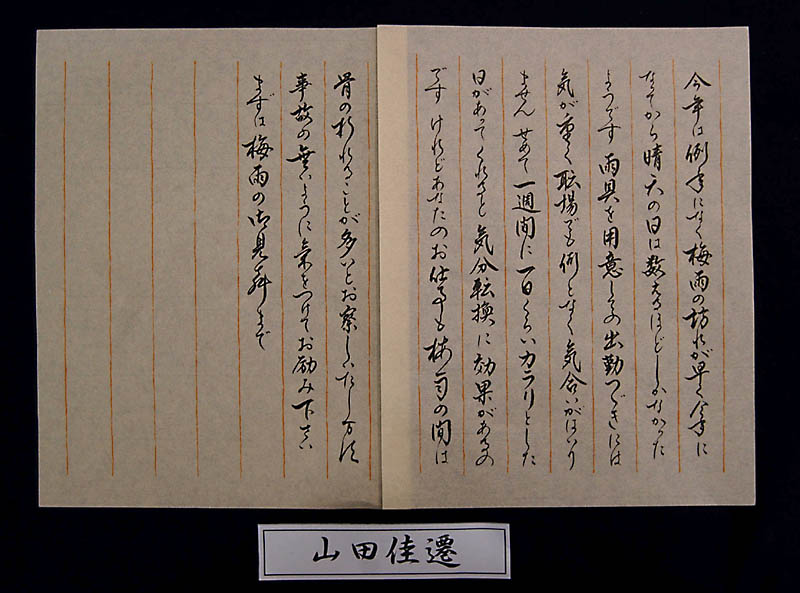 今年は例年になく梅雨の訪れが早く今月に
なってから晴天の日は数えるほどしかなかった
ようです 雨具を用意しての出勤つづきには
気が重く職場でも何となく気合いがはいり
ません せめて一週間に一日くらいカラリとした
日があってくれると気分転換に効果があるの
です けれどあなたのお仕事も梅雨の間は
骨の折れることが多いとお察しいたします
事故の無いように気をつけてお励み下さい
まずは梅雨のお見舞まで
山田佳遷